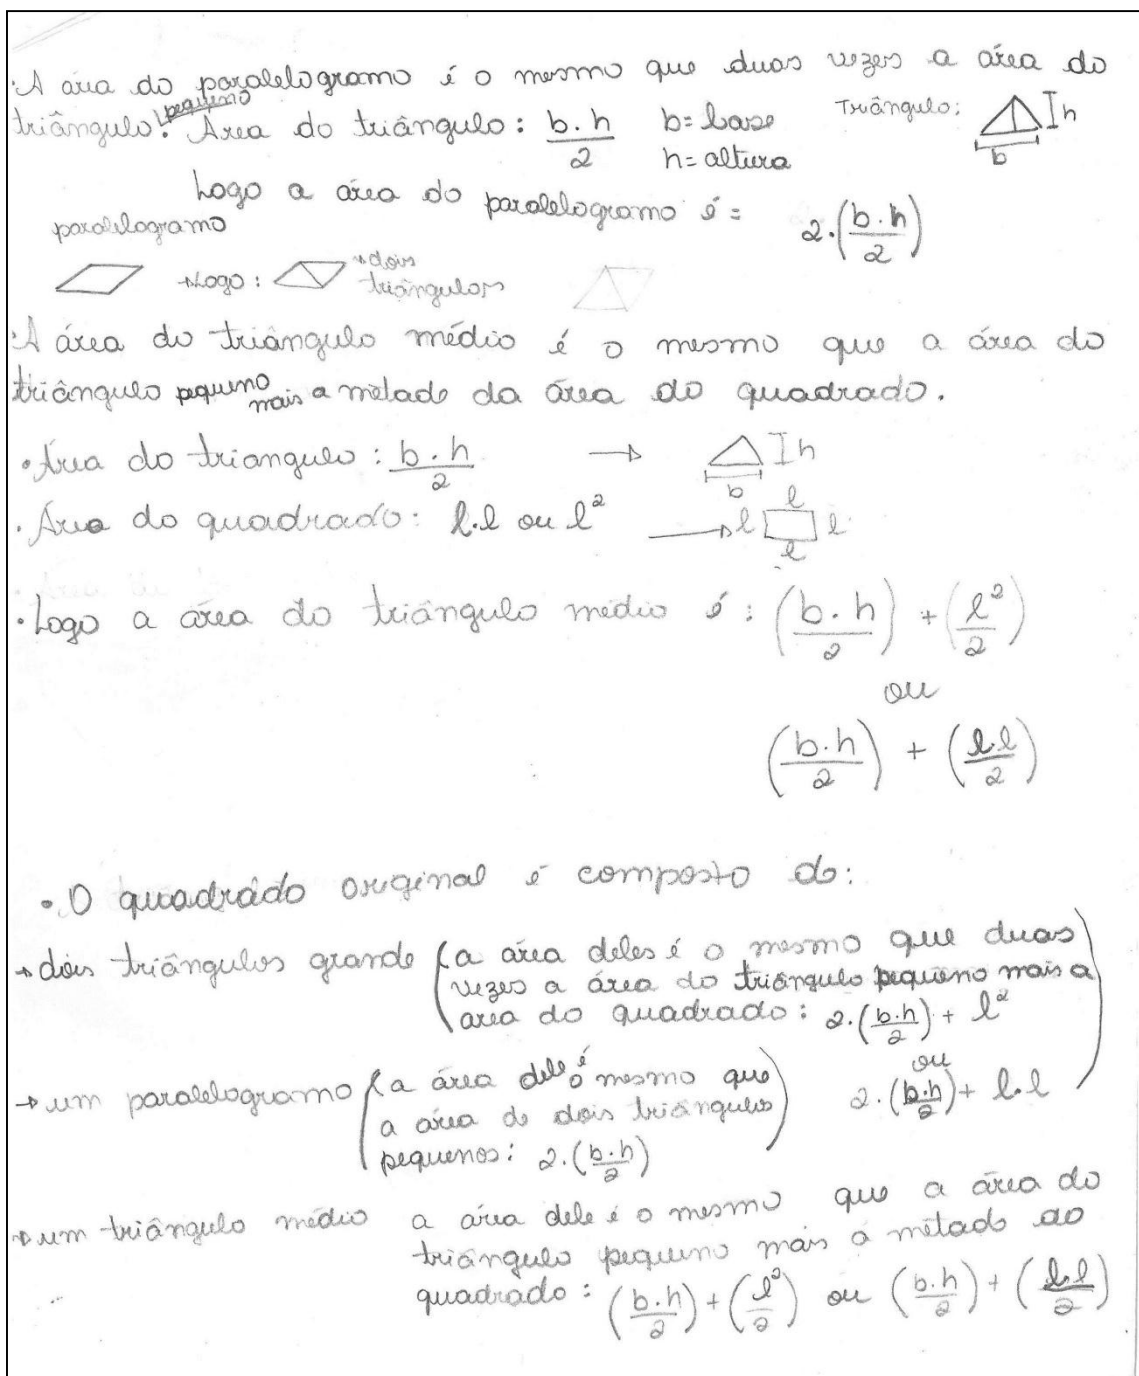 •A área do paralelogramo é o mesmo que duas vezes a área do
triângulo pequeno. Área do triângulo: b.h/2 b=base Triângulo: h
h=altura b
Logo a área do paralelogramo é = 2.(b.h/2)
paralelogramo
→Logo: →dois
triângulos
•A área do triângulo médio é o mesmo que a área do
triângulo pequeno mais a metade da área do quadrado.
•Área do triangulo: b.h/2 → h
b
•Área do quadrado: l.l ou l² → l l l
l
•Logo a área do triângulo médio é: (b.h/2) + (l²/2)
ou
(b.h/2) + (l.l/2)
•O quadrado original é composto de:
→dois triângulos grande (a área deles é o mesmo que duas
vezes a área do triângulo pequeno mais a
area do quadrado: 2.(b.h/2) + l²
ou
2.(b.h/2) + l.l)
→um paralelogramo (a área dele é o mesmo que
a área de dois triângulos
pequenos: 2.(b.h/2))
→um triângulo médio a área dele é o mesmo que a área do
triângulo pequeno mais a metade do
quadrado: (b.h/2) + (l²/2) ou (b.h/2) + (l.l/2)